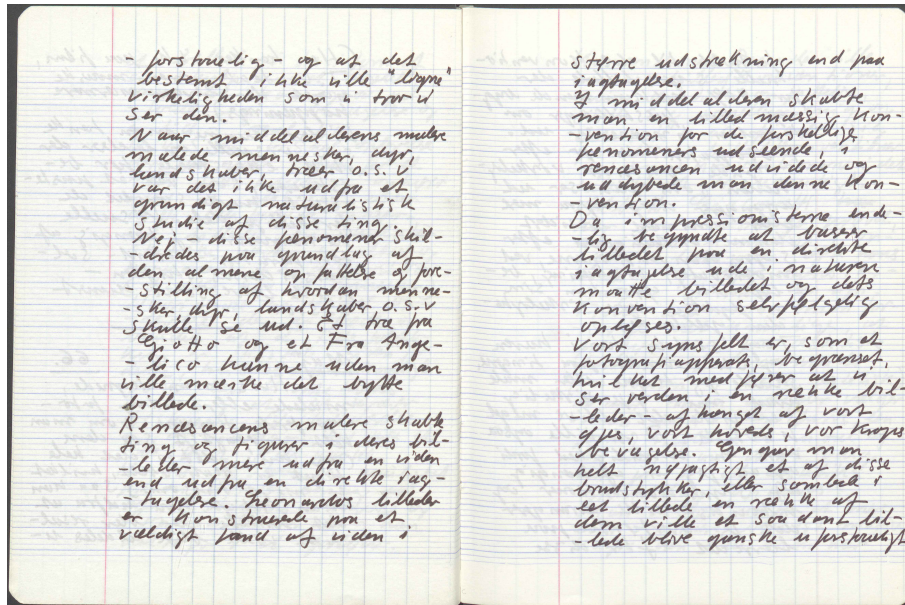 - forstaaelig - og at det
bestemt ikke ville "ligne"
virkeligheden som vi tror vi
ser den.
Naar middelalderens malere
malede mennesker, dyr,
landskaber, træer o.s.v
var det ikke udfra et
grundigt naturalistisk
studie af disse ting.
Nej - disse fenomener skil-
-dredes paa grundlag af
den almene opfattelse og fore-
-stilling af hvordan menne-
-sker, dyr, landskaber o.s.v
skulle se ud. Et træ fra
Giotto og et Fra Ange-
-lico kunne uden man
ville mærke det bytte
billede.
Renæsancens malere skabte
ting og figurer i deres bil-
-leder mere udfra en viden
end udfra en direkte iag-
-tagelse. Leonardos billeder
er konstruerede paa et
vældigt fond af viden i
større udstrækning end paa
iagtagelse.
I middelalderen skabte
man en billedmæssig kon-
-vention for de forskellige
fenomeners udseende, i
renæsancen udvidede og
uddybede man denne kon-
-vention.
Da impressionisterne ende-
-lig begyndte at basere
billedet paa en direkte
iagtagelse ude i naturen
maatte billedet og dets
konvention selvfølgelig
opløses.
Vort synsfelt er, som et
fotografiapparats, begrænset,
hvilket medfører at vi
ser verden i en række bil-
-leder - afhængt af vort
øjes, vort hoveds, vor krops
bevægelse. Gengav man
helt nøjagtigt et af disse
brudstykker, eller samlede i
eet billede en række af
dem ville et saadant bil-
-lede blive ganske uforstaaeligt